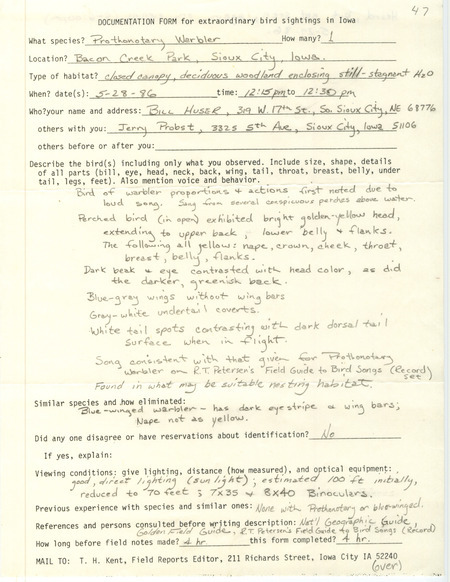 47
DOCUMENTATION FORM for extraordinary bird sightings in Iowa
What species? Prothonotary Warbler How many? 1
Location? Bacon Creek Park, Sioux City, Iowa.
Type of habitat? closed canopy, deciduous woodland enclosing still-stagnent H2O
When? date(s): 5-28-86 time: 12:15pm to 12:30 pm
Who?your name and address: BILL HUSER, 319 W. 17th St., So. Sioux City, NE 68776
others with you: Jerry Probst, 3325 5th Ave, Sioux City, Iowa 51106
others before or after you:
Describe the bird(s) including only what you observed. Include size, shape, details
of all parts (bill, eye, head, neck, back, wing, tail, throat, breast, belly, under
tail, legs, feet). Also mention voice and behavior.
Bird of warbler proportions & actions first noted due to
loud song. Sang from several conspicuous perches above water.
Perched bird (in open) exhibited bright golden-yellow head,
extending to upper back, lower belly & flanks.
The following all yellow: nape, crown, cheek, throat,
breast, belly, flanks.
Dark beak & eye contrasted with head color, as did
the darker, greenish back.
Blue-gray wings without wing bars
Gray-white undertail coverts.
White tail spots contrasting with dark dorsal tail
surface when in flight.
Song consistent with that given for Prothonotary
Warbler on R.T. Petersen's Field Guide to Bird Songs (Record set)
Found in what may be suitable nesting habitat.
Similar species and how eliminated:
Blue-winged warbler - has dark eyestripe & wing bars;
Nape not as yellow.
Did any one disagree or have reservations about identification? No
If yes, explain:
Viewing conditions: give lighting, distance (how measured), and optical equipment:
good, direct lighting (sun light); estimated 100 ft initially,
reduced to 70 feet; 7x35 & 8x40 Binoculars.
Previous experience with species and similar ones: None with Prothonotary or blue-winged.
References and persons consulted before writing description: Nat'l Geographic Guide,
Golden Field Guide, R.T. Petersen's Field Guide to Bird Songs (Record)
How long before field notes made? 4 hr. this form completed? 4 hr.
MAIL TO: T. H. Kent, Field Reports Editor, 211 Richards Street, Iowa City IA 52240
(over)